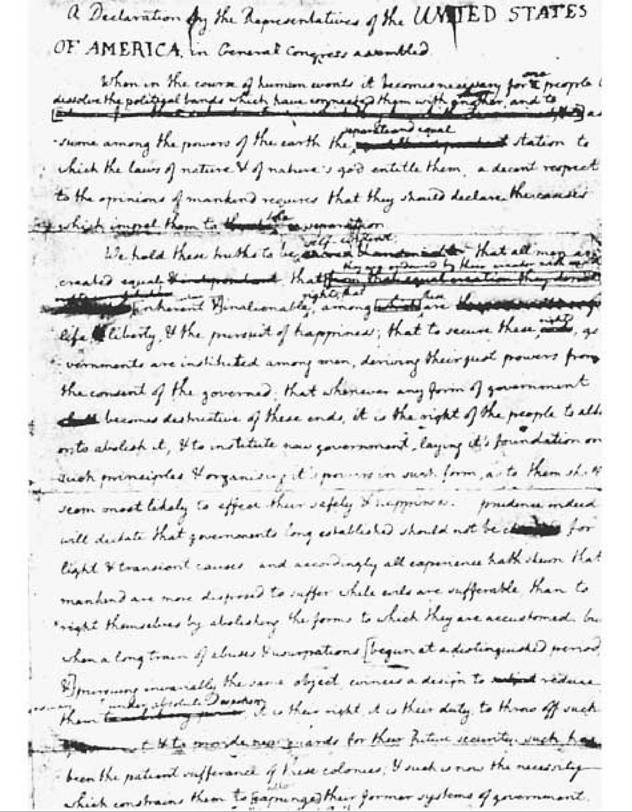 A Declaration by the Representatives of the UNITED STATES
OF AMERICA, in General Congress assembled.
When in the course of human events it becomes necessary for one people
dissolve the political bands which have connected them with another, and to
-sume among the powers of the earth the separate and equal station to
which the laws of nature & of nature's god entitle them, a decent respect
to the opinions of mankind requires that they should declare the causes
which impel them to the separation
We hold these truths to be self-evident that all men are
created equal & independent, that from that equal creation they
they are endowed by their creator with
inherent & inalienable rights; that among which these are
life liberty, & the pursuit of happiness; that to secure these rights, go
vernments are instituted among men, deriving their just powers from
the consent of the governed; that whenever any form of government
becomes destructive of these ends, it is the right of the people to alter
or to abolish it, & to institute new government, laying it's foundation on
such principles & organising it's powers in such form, as to them sh
seem most likely to effect their safety & happiness. prudence indeed
will dictate that governments long established should not be for
light & transient causes and accordingly all experience hath shewn that
mankind are more disposed to suffer while evils are sufferable, than to
right themselves by abolishing the forms to which they are accustomed. bu
when a long train of abuses & usurpations [begun at a distinguished period,
&] pursuing invariably the same object, evinces a design to reduce
them under absolute Despotism it is their right, it is their duty, to throw off such
& to provide new guards for their future security. such has
been the patient sufferance of these colonies; & such is now the necessity
which constrains them to [expunge] their former systems of government.